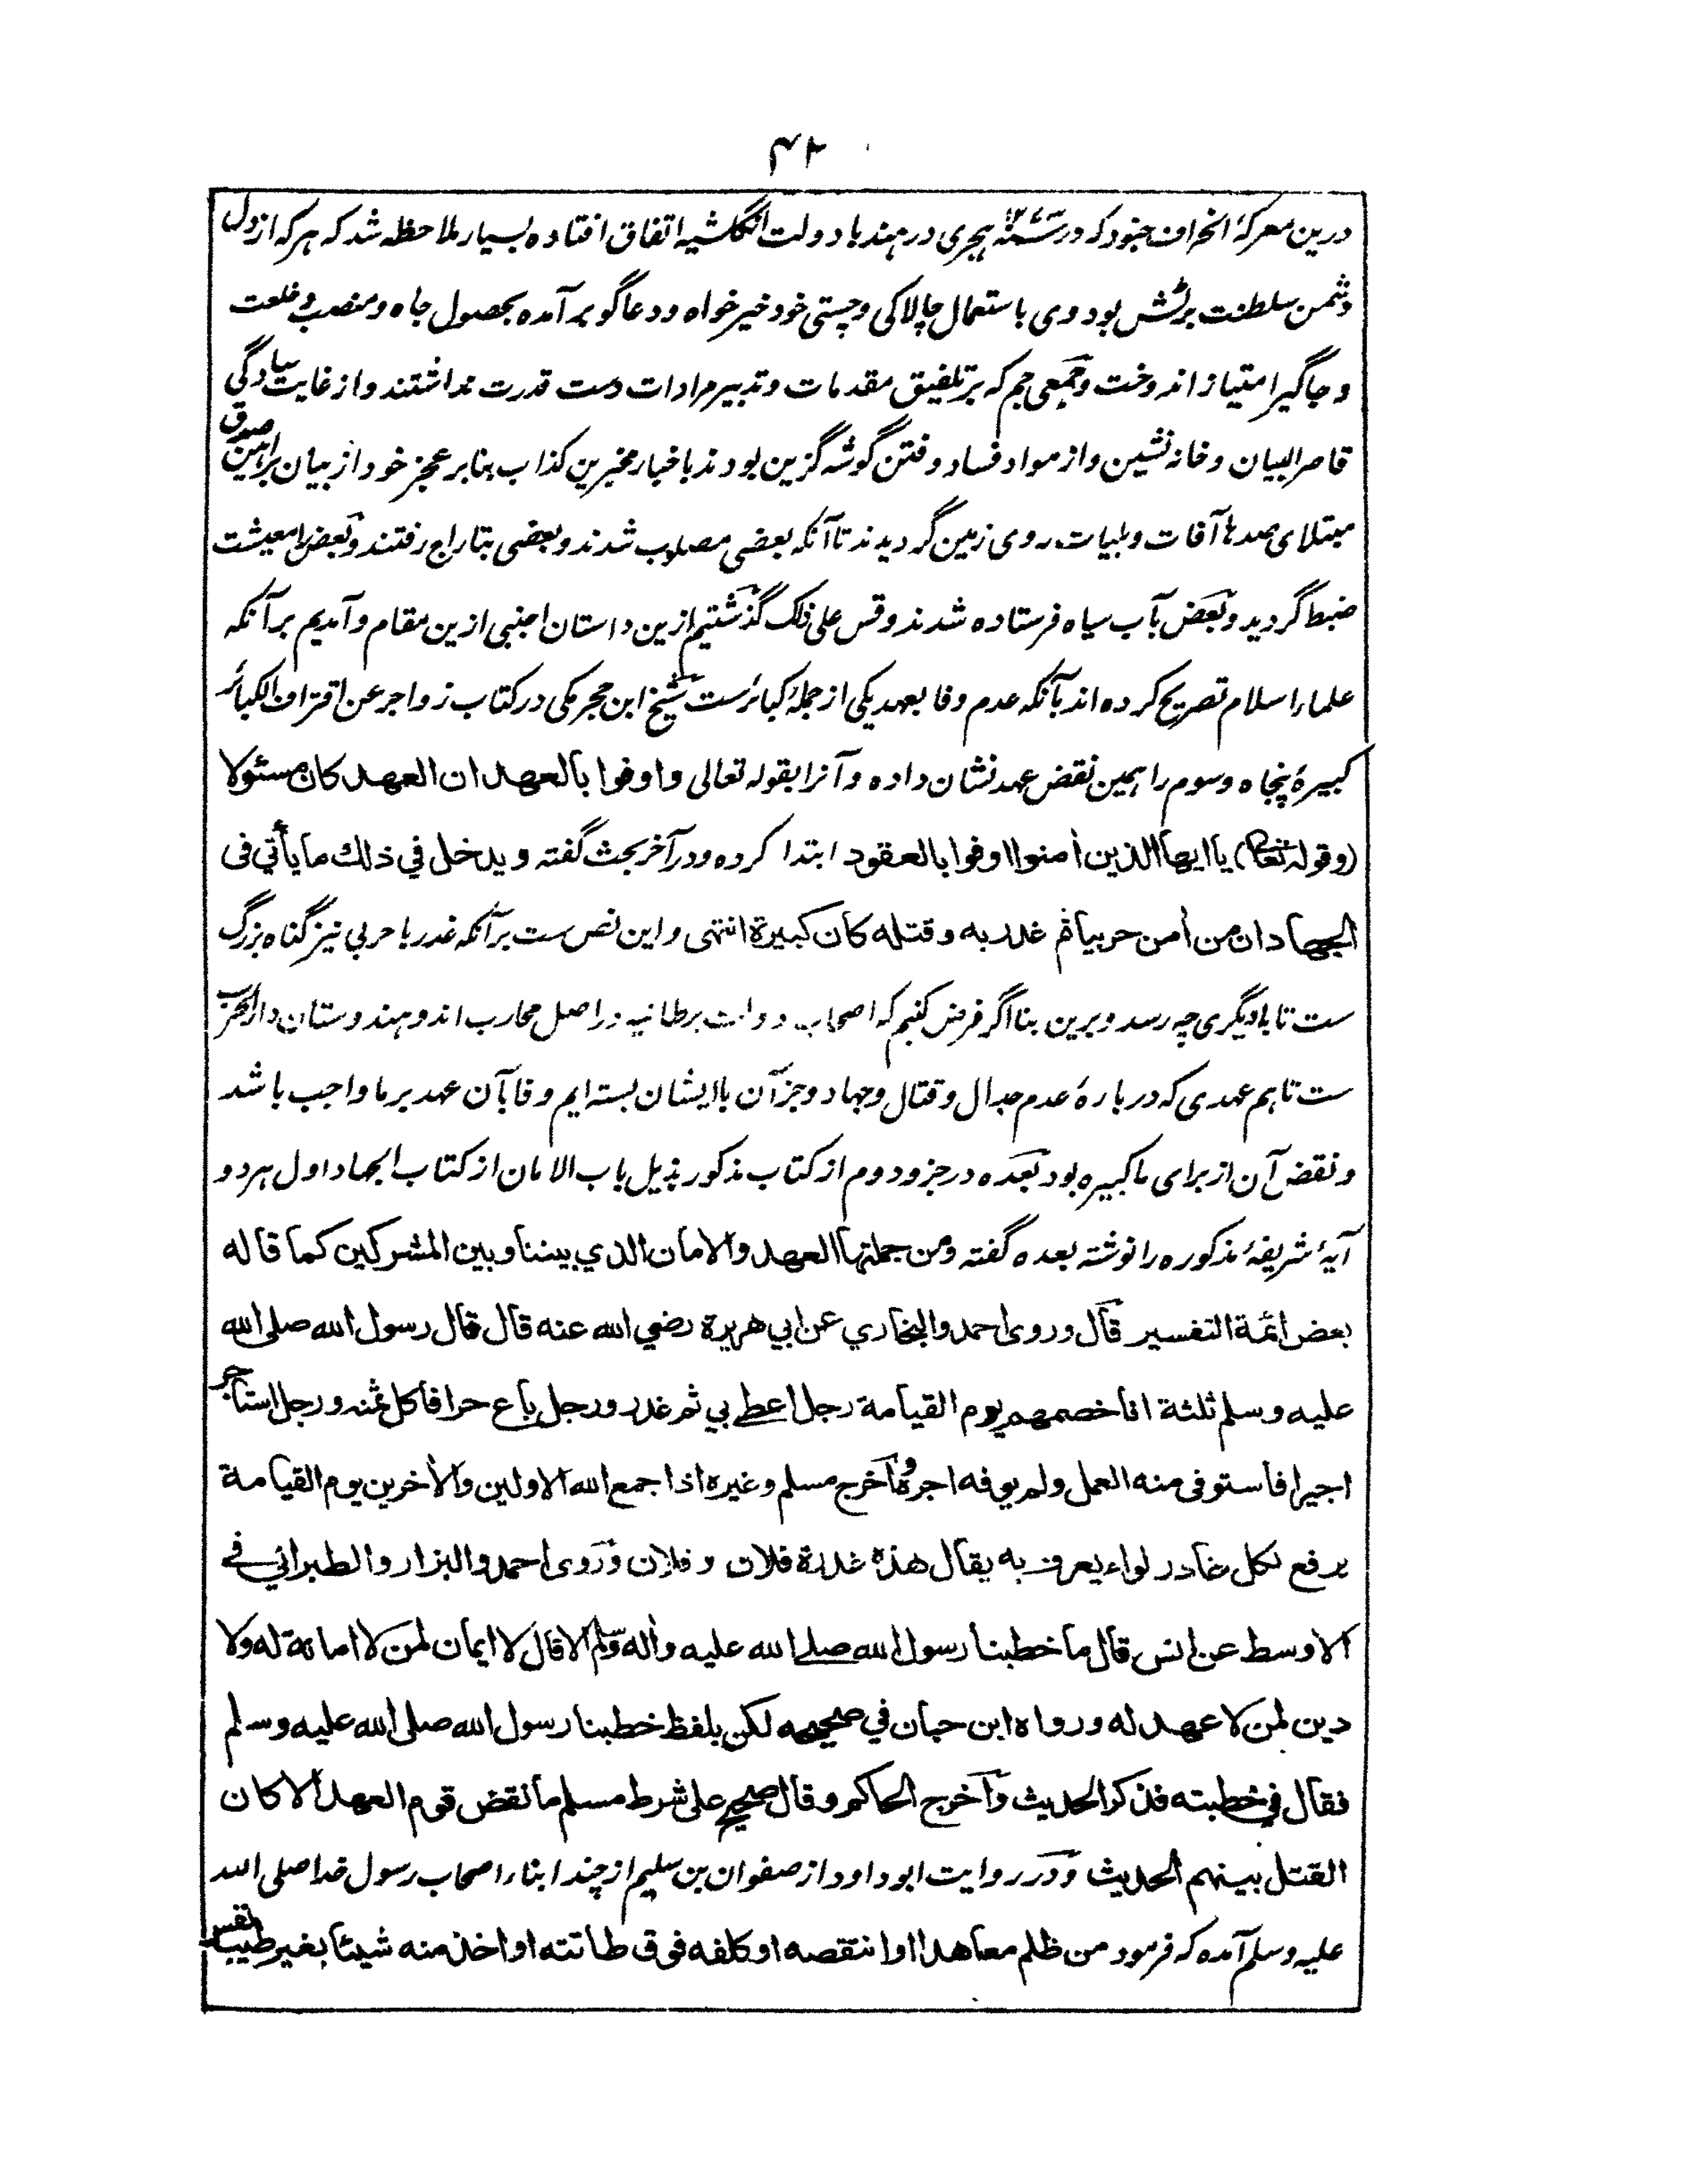 ۴۲
درین معرکۂ انحراف جنود که در ۱۲۷۳ سنه هجری در هند با دولت انگلشیه اتفاق افتاده بسیار ملاحظه شد که هر که از دل
دشمن سلطنت برٹش بود وی باستعمال چالاکی و چستی خود خیرخواه و دعاگو بر آمده بحصول جاه و منصب و خلعت
و جاگیر امتیاز اندوخت و جمعی جم که بر تلفیق مقدمات و تدبیر مرادات دست قدرت نداشتند و از غایت سادگی
قاصر البیان و خانه نشین و از مواد فساد و فتن گوشه گزین بودند باخبار مخبرین کذاب بنابر عجز خود از بیان براهین صدق
مبتلای صدها آفات و بلیات روی زمین گردیدند تا آنکه بعضی مصلوب شدند و بعضی بتاراج رفتند و بعض را معیشت
ضبط گردید و بعض بآب سیاه فرستاده شدند و قس علی ذلک گذشتیم ازین داستان اجنبی ازین مقام و آمدیم بر آنکه
علماء اسلام تصریح کرده اند بآنکه عدم وفا بعهد یکی از جملۂ کبائرست شیخ ابن حجر مکی در کتاب زواجر عن اقتراف الکبائر
کبیرۂ پنجاه و سوم را همین نقض عهد نشان داده و آنرا بقوله تعالی واوفوا بالعهد ان العهد كان مسئولا
(وقوله تعالى) يا ايها الذين أمنوا اوفوا بالعقود ابتدا کرده و در آخر بحث گفته ويدخل في ذلك ما يأتي فى
الجهاد ان من أمن حربيا ثم غدر به وقتله كان كبيرة انتهى و این نص ست بر آنکه غدر با حربی نیز گناه بزرگ
ست تا بادیگری چه رسد و برین بنا اگر فرض کنیم که اصحاب دولت برطانیه در اصل محارب اند و هندوستان دار الحرب
ست تاهم عهدی که دربارۂ عدم جدال و قتال و جهاد و جز آن با ایشان بسته ایم وفا بآن عهد بر ما واجب باشد
و نقض آن از برای ما کبیره بود بعده در جزو دوم از کتاب مذکور بذیل باب الامان از کتاب الجهاد اول هر دو
آیۂ شریفۂ مذکوره را نوشته بعده گفته ومن جملتها العهد والامان الذي بيننا وبين المشركين كما قاله
بعض ائمة التفسير قال وروى احمد والبخاري عن ابي هريرة رضي الله عنه قال قال رسول الله صلى الله
عليه وسلم ثلثة انا خصمهم يوم القيامة رجل اعطى بي ثم غدر ورجل باع حرا فاكل ثمنه ورجل استاجر
اجيرا فاستوفى منه العمل ولم يوفه اجره وأخرج مسلم وغيره اذا جمع الله الاولين والأخرين يوم القيامة
يرفع لكل غادر لواء يعرف به يقال هذه غدرة فلان وفلان وروى احمد والبزار والطبراني في
الاوسط عن انس قال ما خطبنا رسول الله صلى الله عليه وأله وسلم الا قال لا ايمان لمن لا امانة له ولا
دين لمن لا عهد له ورواه ابن حبان في صحيحه لكن بلفظ خطبنا رسول الله صلى الله عليه وسلم
فقال في خطبته فذكر الحديث وأخرج الحاكم وقال صحيح على شرط مسلم ما نقض قوم العهد الا كان
القتل بينهم الحديث و در روایت ابو داود از صفوان بن سلیم از چند ابناء اصحاب رسول خدا صلی الله
علیه و سلم آمده که فرمود من ظلم معاهدا او انتقصه او كلفه فوق طاقته او اخذ منه شيئا بغير طيب نفس